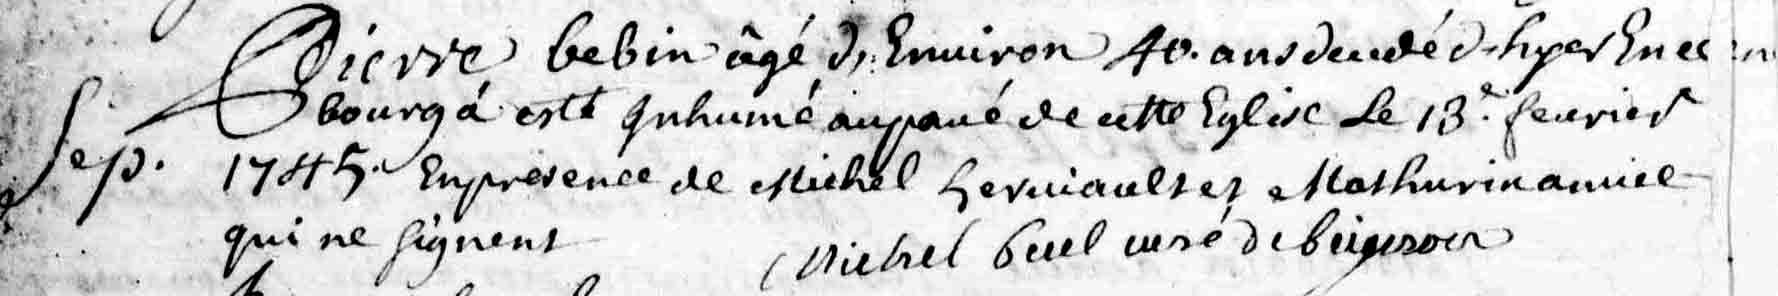 Pierre bebin âgé d'Environ 40. ans decedé d'hyer En ce
bourg á esté Inhumé au pavé de cette Eglise Le 13.e fevrier
Sep. 1745. En presence de Michel herviault et Mathurin amice
qui ne signent Michel buel curé de